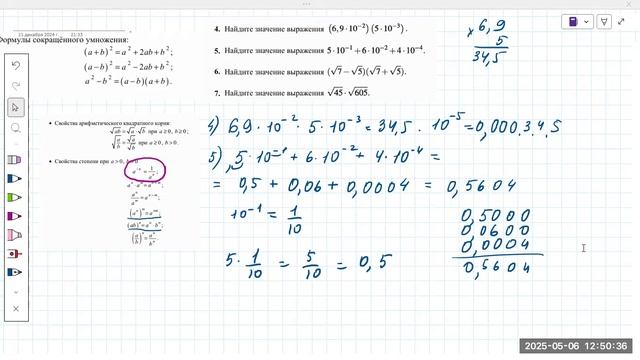 21 декабря 2024 г. 21:33
Формулы сокращённого умножения:
(a+b)² = a² + 2ab + b²;
(a−b)² = a² − 2ab + b²;
a² − b² = (a−b)(a+b).
• Свойства арифметического квадратного корня:
√ab = √a · √b при a ≥ 0, b ≥ 0;
√(a/b) = √a/√b при a ≥ 0, b > 0.
• Свойства степени при a > 0, b > 0
a⁻ⁿ = 1/aⁿ;
aⁿ · aᵐ = aⁿ⁺ᵐ;
aⁿ/aᵐ = aⁿ⁻ᵐ;
(aⁿ)ᵐ = aⁿᵐ;
(ab)ⁿ = aⁿ · bⁿ;
(a/b)ⁿ = aⁿ/bⁿ
4. Найдите значение выражения (6,9·10⁻²)(5·10⁻³).
5. Найдите значение выражения 5·10⁻¹ + 6·10⁻² + 4·10⁻⁴.
6. Найдите значение выражения (√7 − √5)(√7 + √5).
7. Найдите значение выражения √45 · √605.
× 6,9
5
34,5
4) 6,9 · 10⁻² · 5 · 10⁻³ = 34,5 · 10⁻⁵ = 0,000345
5) 5·10⁻¹ + 6·10⁻² + 4·10⁻⁴ =
= 0,5 + 0,06 + 0,0004 = 0,5604
10⁻¹ = 1/10
5 · 1/10 = 5/10 = 0,5
0,5000
0,0600
0,0004
0,5604
2025-05-06 12:50:36